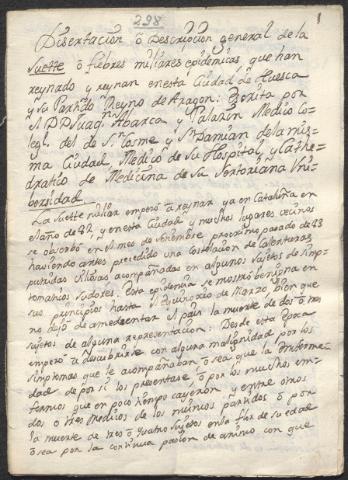 298
1
Disertacion ô Descripcion general de la
Suette ô fiebres miliares epidemicas que han
reynado y reynan en esta Ciudad de Huesca
y su Partido Reyno de Aragon: Escrita por
el D.D. Juaq.n Abarca y Medico Co-
legl. del de S.n Cosme y S.n Damian de la mis-
ma Ciudad, Medico de su Hospital, y Cathe-
dratico de Medicina de su Sertoriana Uni-
bersidad
La suette miliar empezó a reynar ya en Cataluña en
el año de 82, y en esta Ciudad y muchos lugares vecinos
se observó en el mes de proximo pasado de 83
haviendo antes precedido una Costelacion de Calenturas
putridas acompañadas en algunos sujetos de simp-
tomaticos sudores. Esta epidemia se mostró benigna en
sus principios hasta el de Marzo, bien que
no dejo de amedrentar el pais la muerte de dos ô tres
sujetos de alguna representacion: Desde esta Epoca
empezó à descubrirse con alguna malignidad por los
simptomas que le acompañaban ô sea que la enferme-
dad de por si los presentase, ô por los muchos en-
fermos que en poco tiempo cayeron, y entre otros
dos ô tres Medicos de los partidos ô por
la muerte de tres ô quatro sujetos en la flor de su edad
ô sea por la continua pasion de animo con que